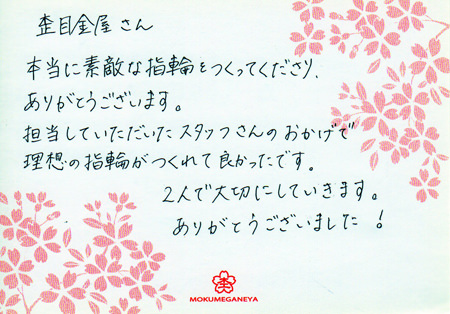 杢目金屋さん
本当に素敵な指輪をつくってくださり、
ありがとうございます。
担当していただいたスタッフさんのおかげで
理想の指輪がつくれて良かったです。
2人で大切にしていきます。
ありがとうございました！
杢
MOKUMEGANEYA